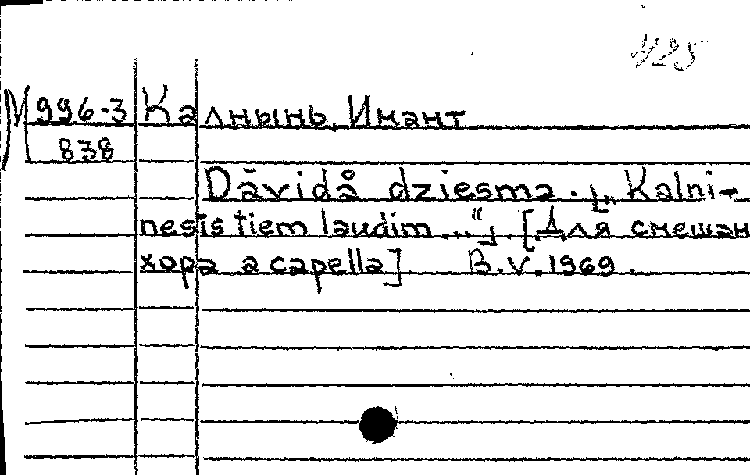 1125
М 996-3 Калнынь, Имант
838
Dāvidå dziesma. „Kalni-
nesīs tiem laudim..." [Для смешан
хора a capella]. B.V. 1969.